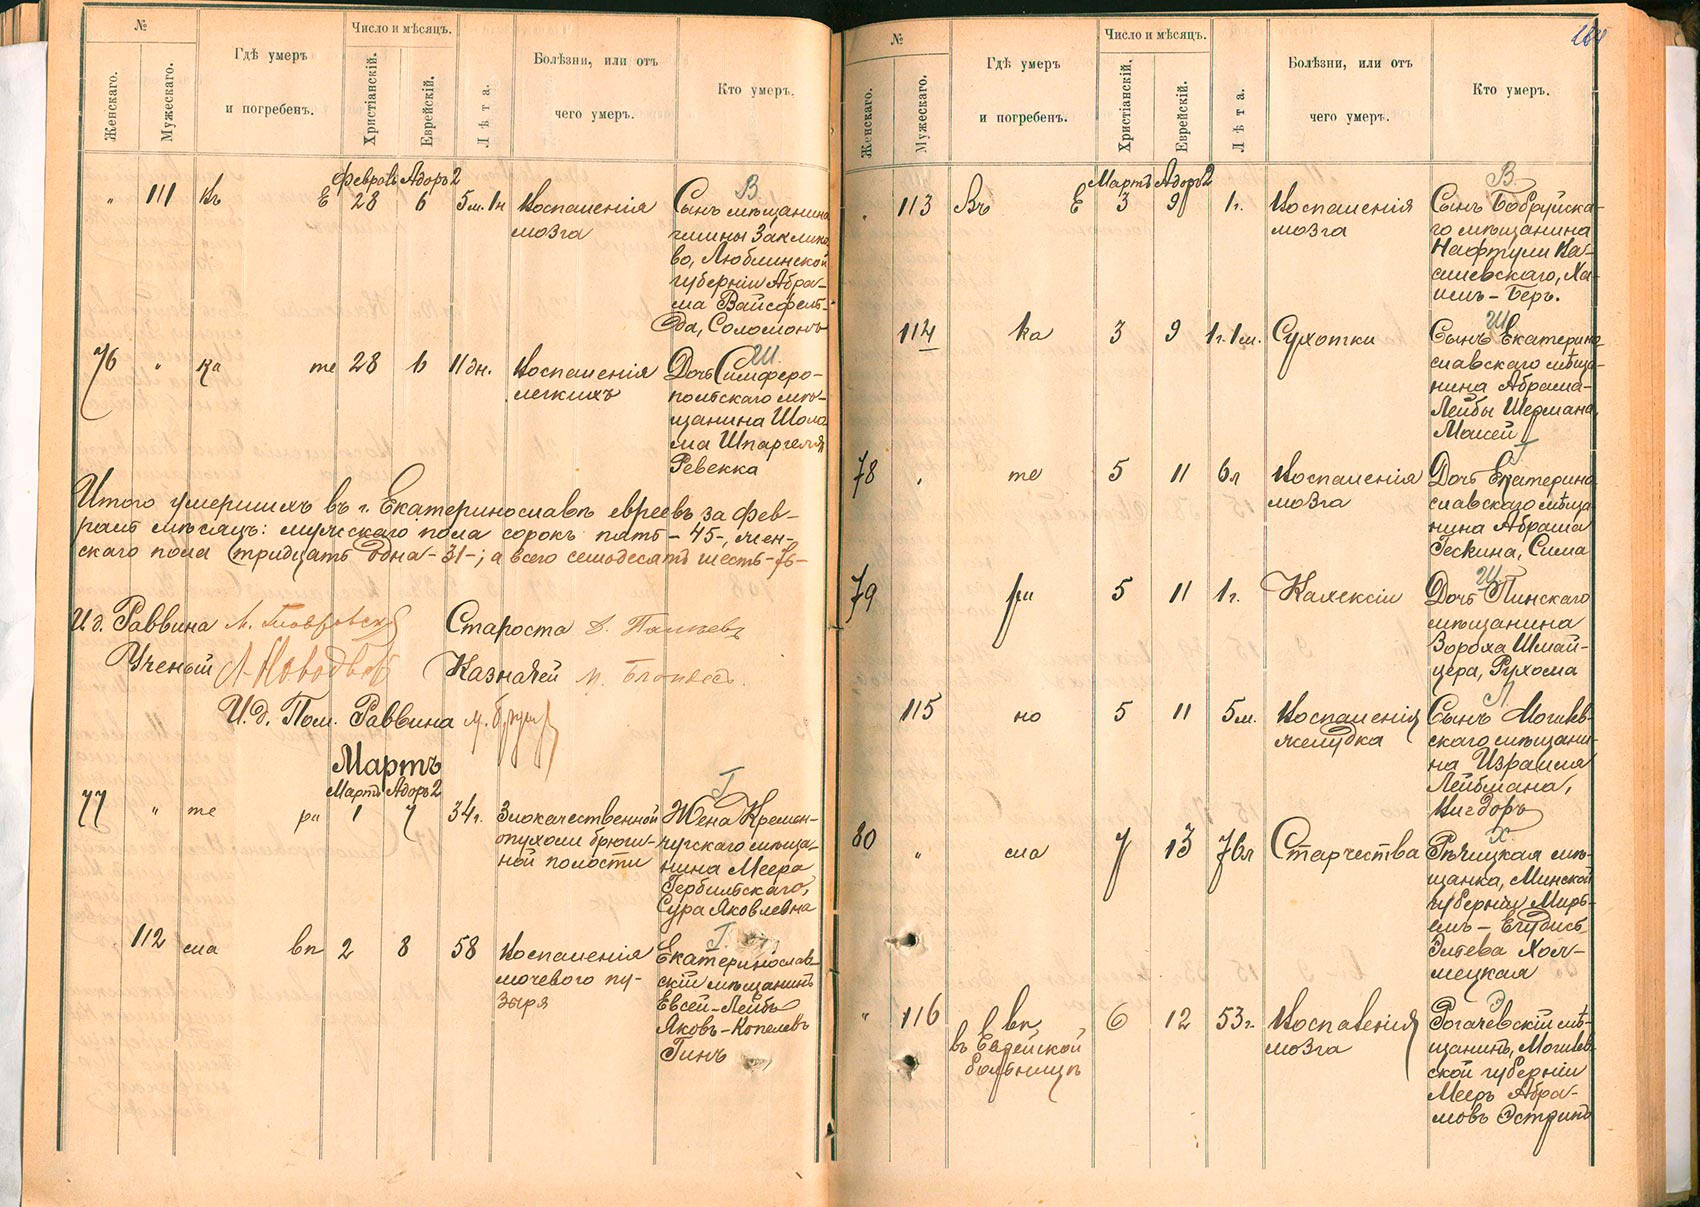 №
Женскаго.
Мужескаго.
Гдѣ умеръ
и погребенъ.
Число и мѣсяцъ.
Христіанскій.
Еврейскій.
Лѣта.
Болѣзни, или отъ
чего умеръ.
Кто умеръ.
Февраль Адоръ 2
" 111 Въ Е 28 6 5 м. 1 н Воспаленія
мозга
В
Сынъ мѣщанина
гмины Заклико
во, Люблинской
губерніи Абра-
ма Вайсфель-
да, Соломонъ
76 " ка те 28 6 11 дн. Воспаленія
легкихъ
Ш.
Дочь Симферо-
польскаго мѣ-
щанина Шоло
ма Шпаргеля
Ревекка
Итого умершихъ въ г. Екатеринославѣ евреевъ за фев-
раль мѣсяцъ: мужскаго пола сорокъ пять - 45-, жен-
скаго пола тридцать одна - 31 -; а всего семьдесятъ шесть - 76 -
И. д. Раввина
Староста
Ученый
Казначей
И. д. Пом. Раввина
Мартъ
Мартъ Адоръ 2
77 " те ри 1 7 34 г. Злокачественной
опухоли брюш-
ной полости
Г
Жена Кремен-
чугскаго мѣща-
нина Меера
Гербильскаго,
Сура Яковлевна
112 сла вп 2 8 58 Воспаленія
мочевого пу-
зыря
Г.
Екатеринослав-
скій мѣщанинъ
Евсей-Лейбъ
Яковъ-Копелевъ
Гинъ
284
№
Женскаго.
Мужескаго.
Гдѣ умеръ
и погребенъ.
Число и мѣсяцъ.
Христіанскій.
Еврейскій.
Лѣта.
Болѣзни, или отъ
чего умеръ.
Кто умеръ.
Мартъ Адоръ 2
" 113 Въ Е 3 9 1 г. Воспаленія
мозга
В.
Сынъ Бобруйска-
го мѣщанина
Нафтули Ва-
шевскаго, Ха-
имъ-Беръ.
114 ка 3 9 1 г. 1 м. Сухотки
Ш
Сынъ Екатерино
славскаго мѣща-
нина Абрама-
Лейбы Шермана,
Моисей
78 " те 5 11 6 л Воспаленія
мозга
Г
Дочь Екатерино
славскаго мѣща
нина Абрама
Гескина, Сима
79 ри 5 11 1 г. Кахексіи
Ш.
Дочь Пинскаго
мѣщанина
Зороха Шмай-
цера, Рухома
115 но 5 11 5 м. Воспаленія
желудка
Л.
Сынъ Могилев-
скаго мѣщани-
на Израиля
Лейбмана,
Вигдоръ
80 " сла 7 13 76 л Старчества
Х
Рѣчицкая мѣ-
щанка, Минской
губерніи Мирь-
емъ-Егудисъ
Элтева Хол-
мецкая
" 116 вп
въ Еврейской
больницѣ
6 12 53 г. Воспаленія
мозга
Э
Рогачевскій мѣ-
щанинъ, Могилев-
ской губерніи
Мееръ Абра-
мовъ Эстринъ